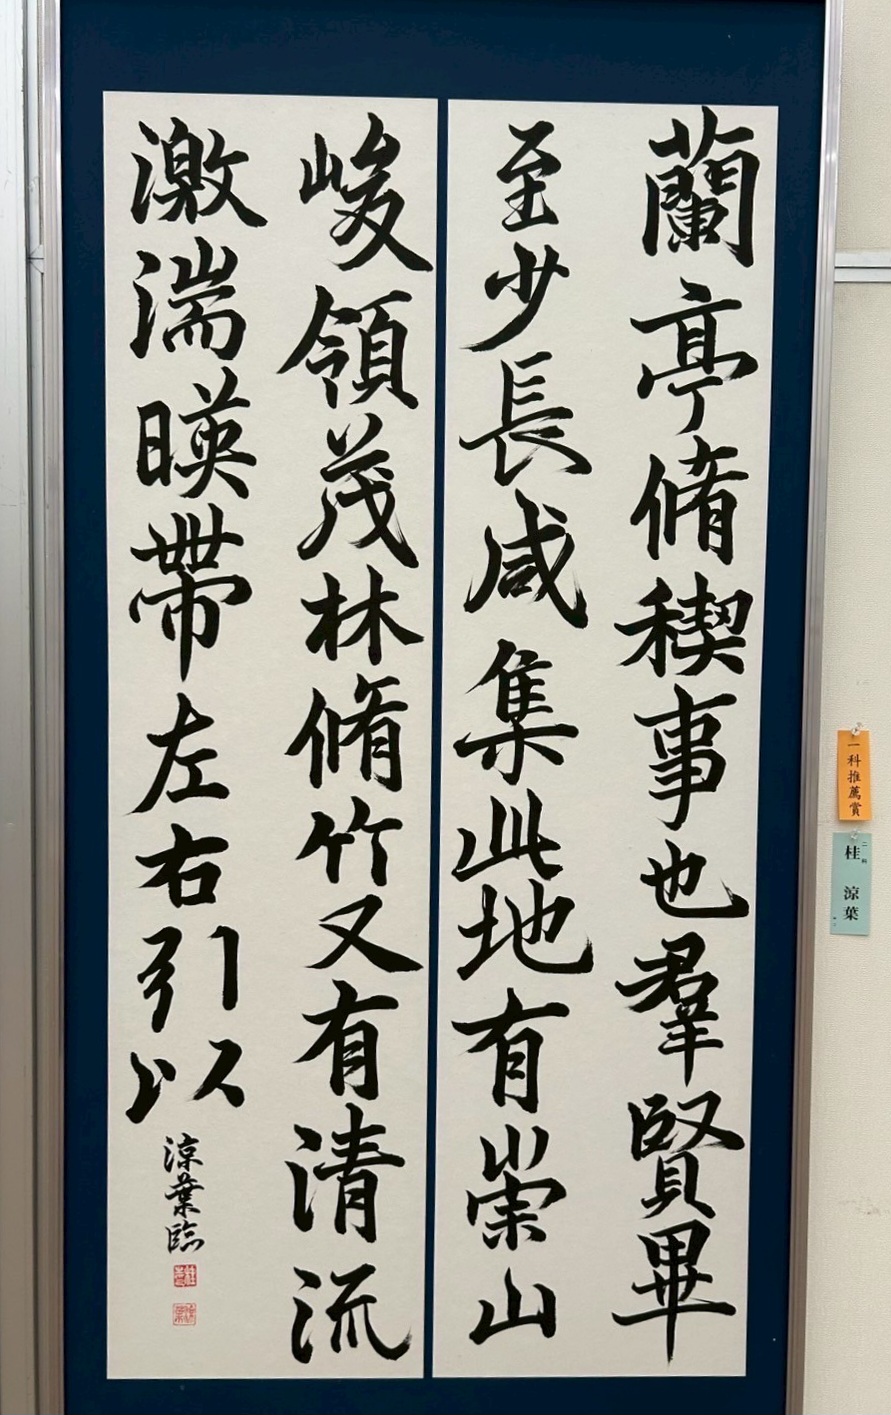 蘭亭脩稧事也羣賢畢
至少長咸集此地有崇山
峻領茂林脩竹又有清流
激湍暎帶左右引以
涼葉臨
一科推薦賞
二科
桂 涼葉